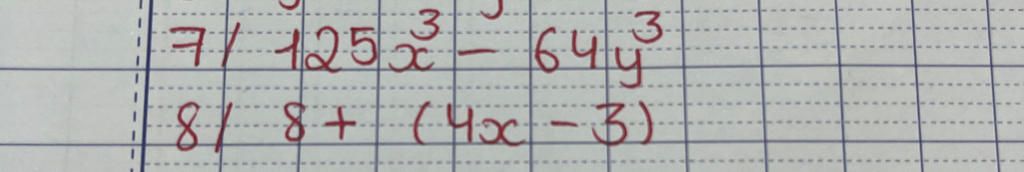 7/ 125x³ - 64y³
8/ 8 + (4x - 3)